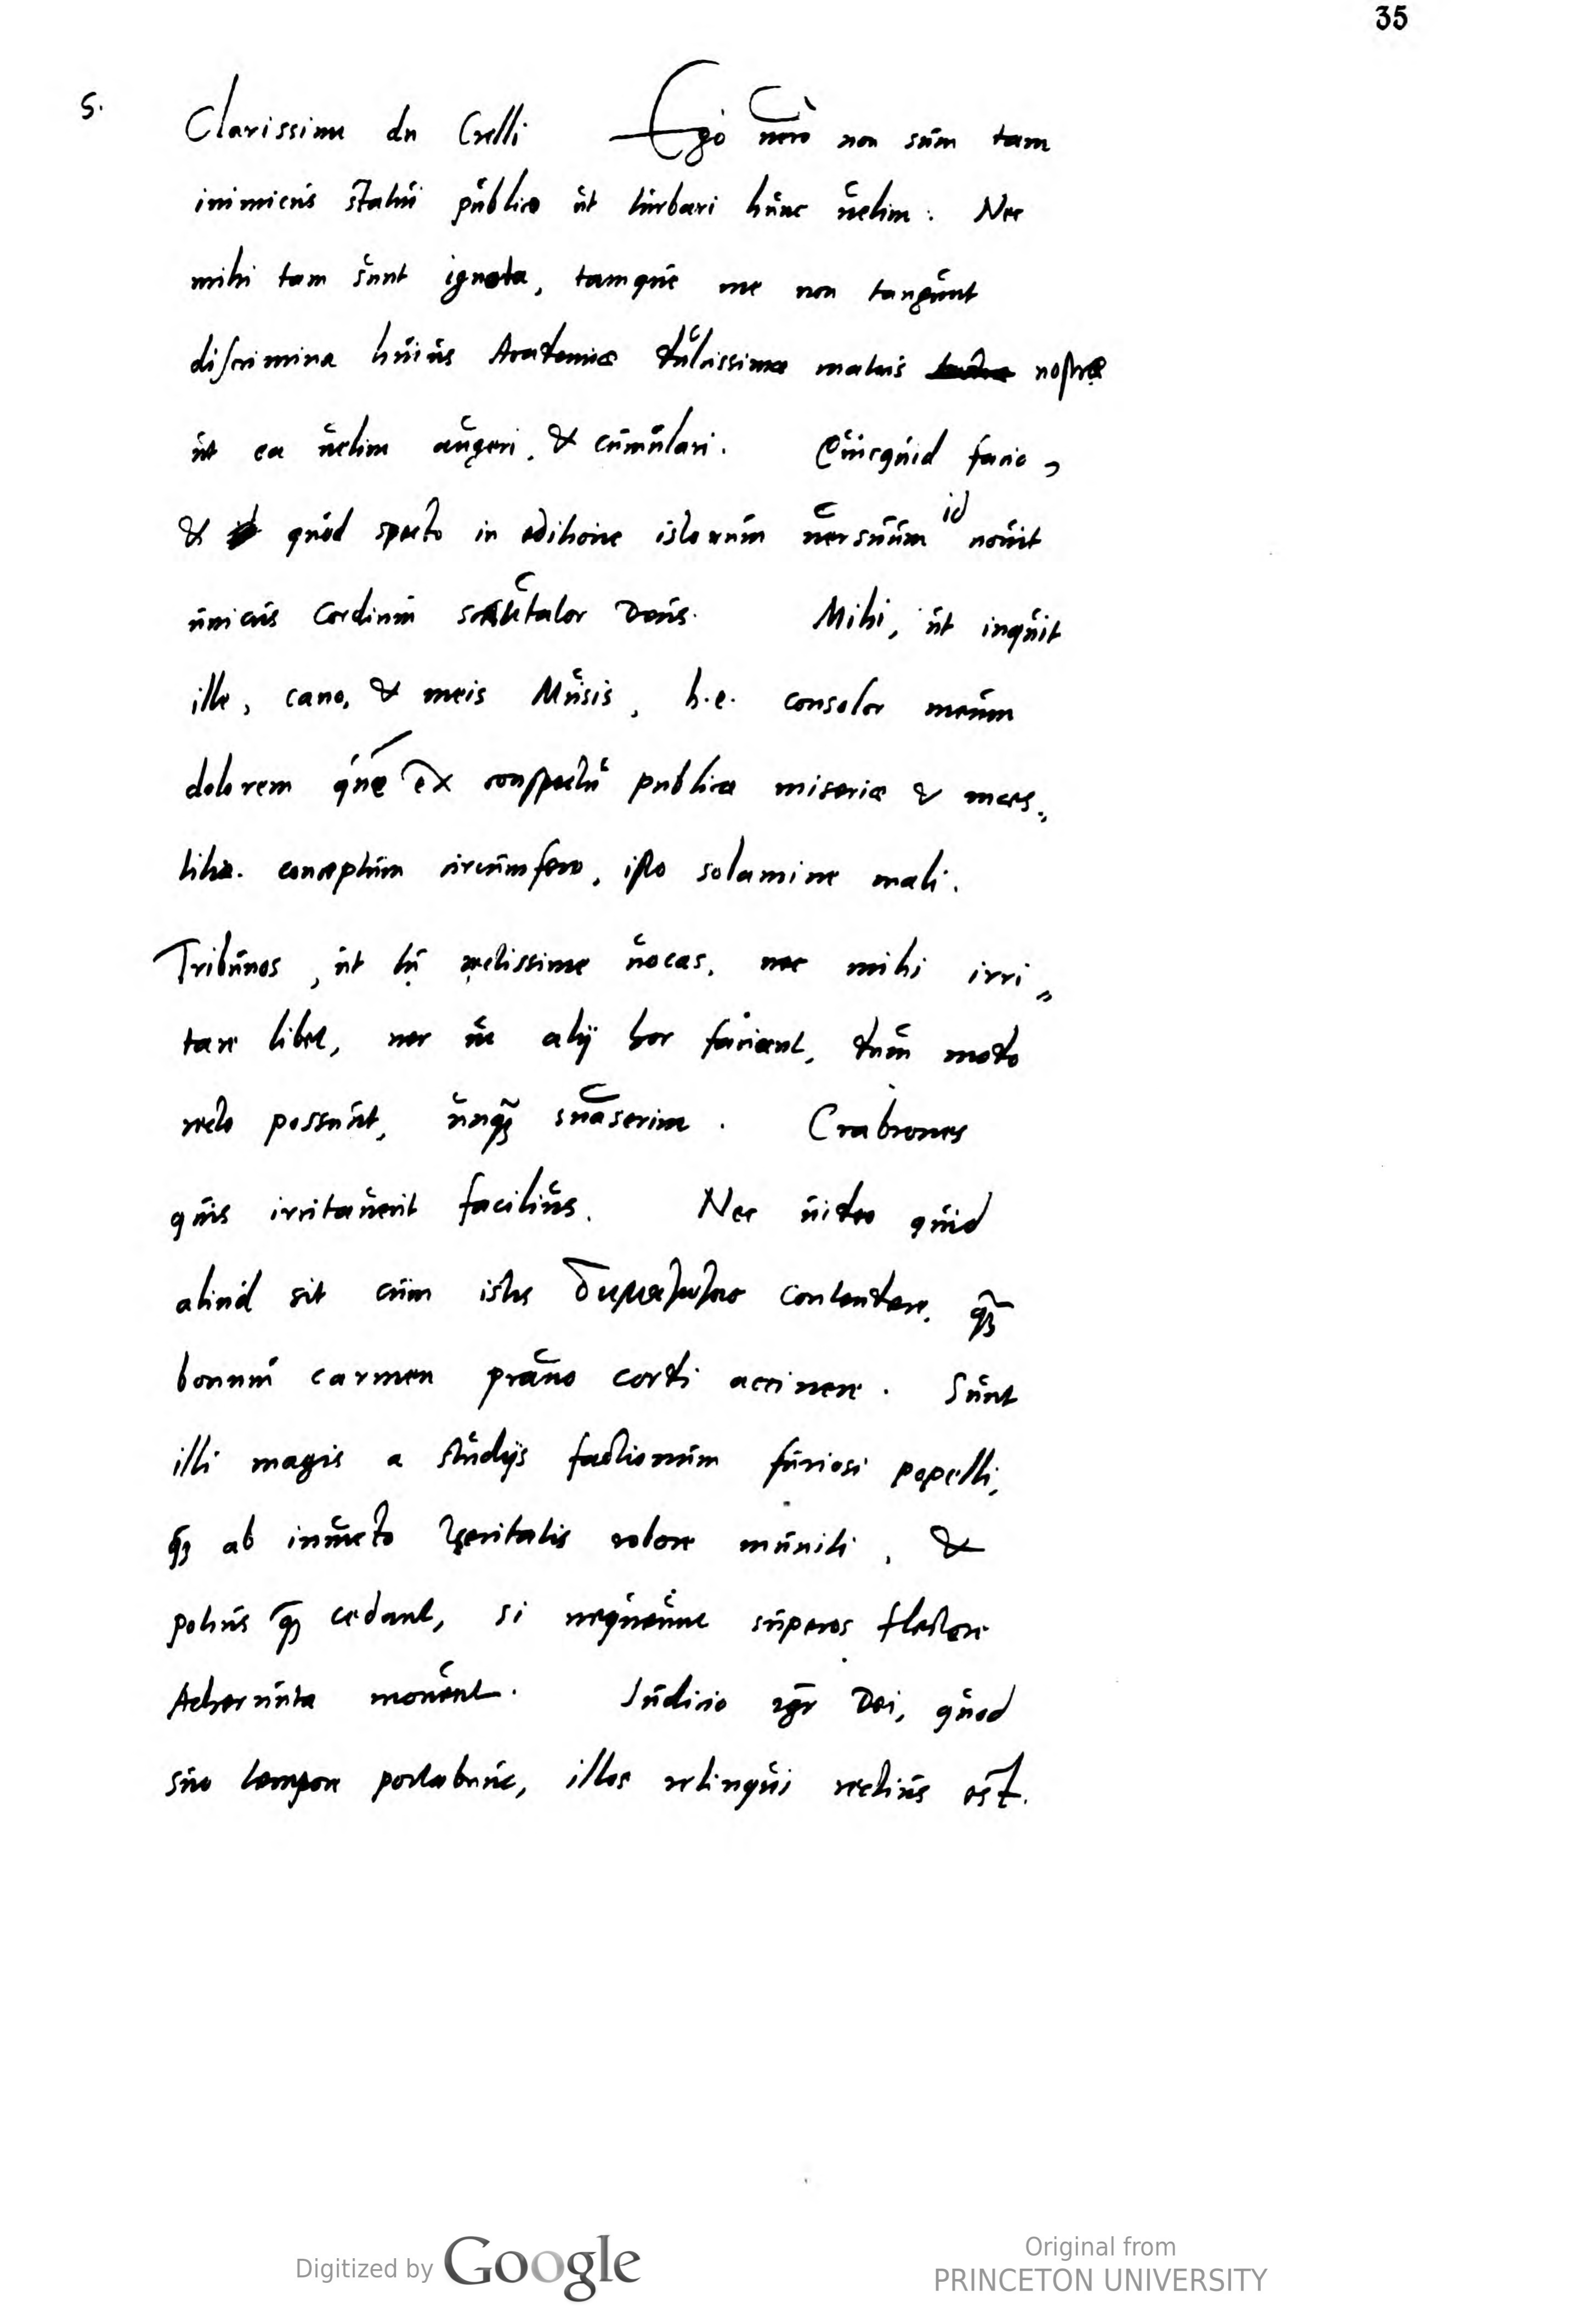 35
S. Clarissime dn Crelli Ego uero non sum tam
inimicus statui publico ut turbari hunc uelim: Nec
mihi tam sunt ignota, tamque me non tangunt
discrimina huius Academiæ dulcissimæ matris nostræ
ut ea uelim augeri, & cumulari. Quicquid facio,
& quod specto in editione istorum uersuum id nouit
unicus Cordium Deus. Mihi, ut inquit
ille, cano, & meis Musis, h.e. consolor meum
dolorem quē ex conspectu publicæ miseriæ & mœs„
titiæ conceptum circumfero, isto solamine mali.
Tribunos, ut tu rectissime uocas, nec mihi irri„
tare libet, nec ut alij hoc faciant, dum modo
recto possunt, unq̃ʒ suaserim. Crabrones
quis irritauerit facilius. Nec uideo quid
aliud sit cum istis contendere, q̃ʒ
bonum carmen prauo cordi accinere. Sunt
illi magis a studijs factionum furiosi popelli,
q̃ʒ ab inuicto Veritatis robore muniti, &
potius q̃ʒ cedant, si nequeunt superos flectere
Acherunta mouent. Iudicio igr Dei, quod
suo tempore portabunt, illos relinqui rectius est.
Digitized by Google
Original from
PRINCETON UNIVERSITY